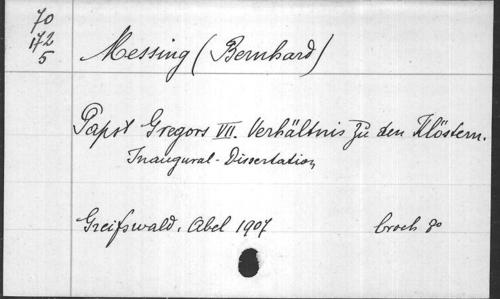 70
172
5
Messing (Bernhard)
Papst Gregors VII. Verhältnis zu den Klöstern.
Inaugural-Dissertation
Greifswald. Abel 1907 broch 8°